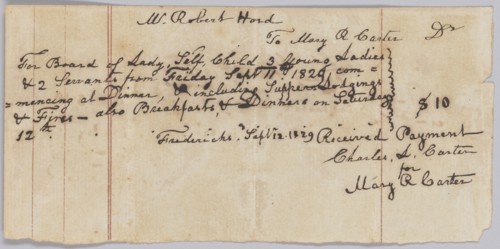 Mr. Robert Hord
To Mary R Carter Dr
For Board of Lady, Self, Child 3 Young Ladies
& 2 Servants from Friday Sept 11. 1829 com=
=mencing at Dinner & including Suppers Lodgings
& Fires - also Breakfasts, & Dinners on Saturday
12th. $10
Fredericks.g Sept 12 - 1829 Received Payment
Charles A. Carter
for
Mary R Carter